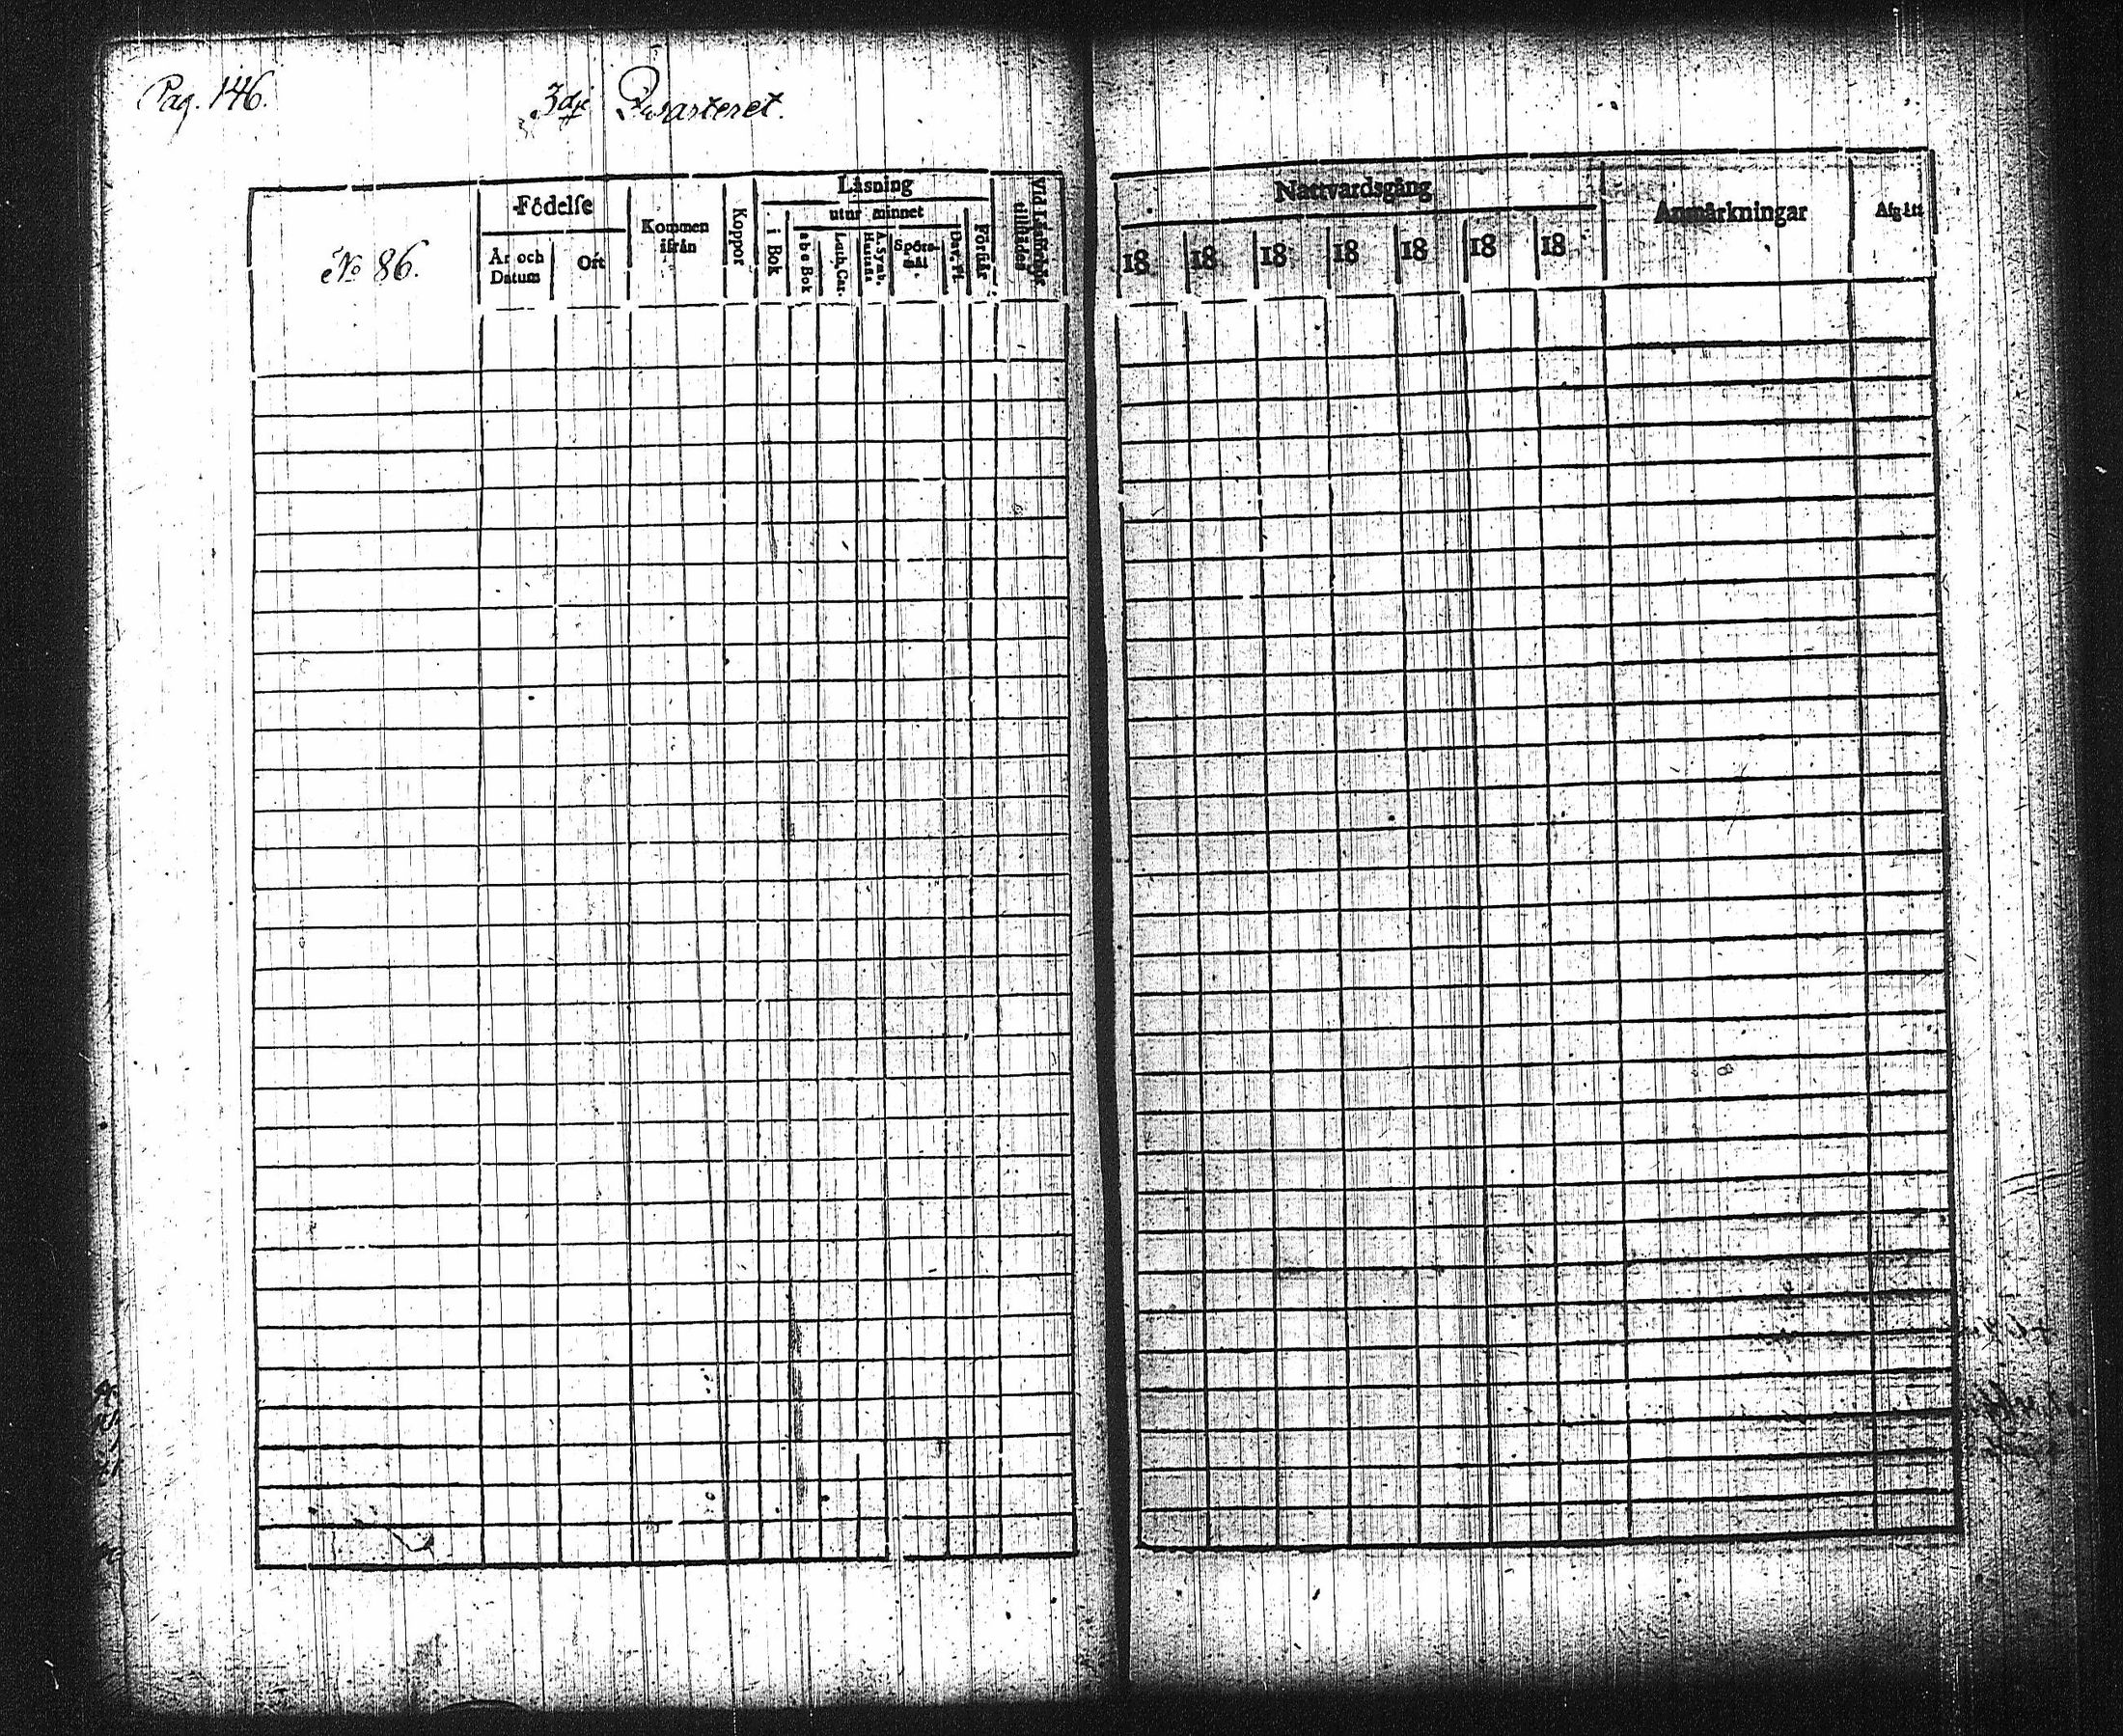 Pag. 146.
3dje Qvarteret.
No 86.
Födelse
År och
Datum
Ort
Kommen
ifrån
Koppor
Läsning
i Bok
utur minnet
a b c Bok
Luth. Cat.
A. Symb.
Hustafla
Spörs-
mål
Dav. Ps.
Förstår
Vid Läsningar
tillstädes
Nattvardsgång
18 18 18 18 18 18 18
Anmärkningar
Afgått